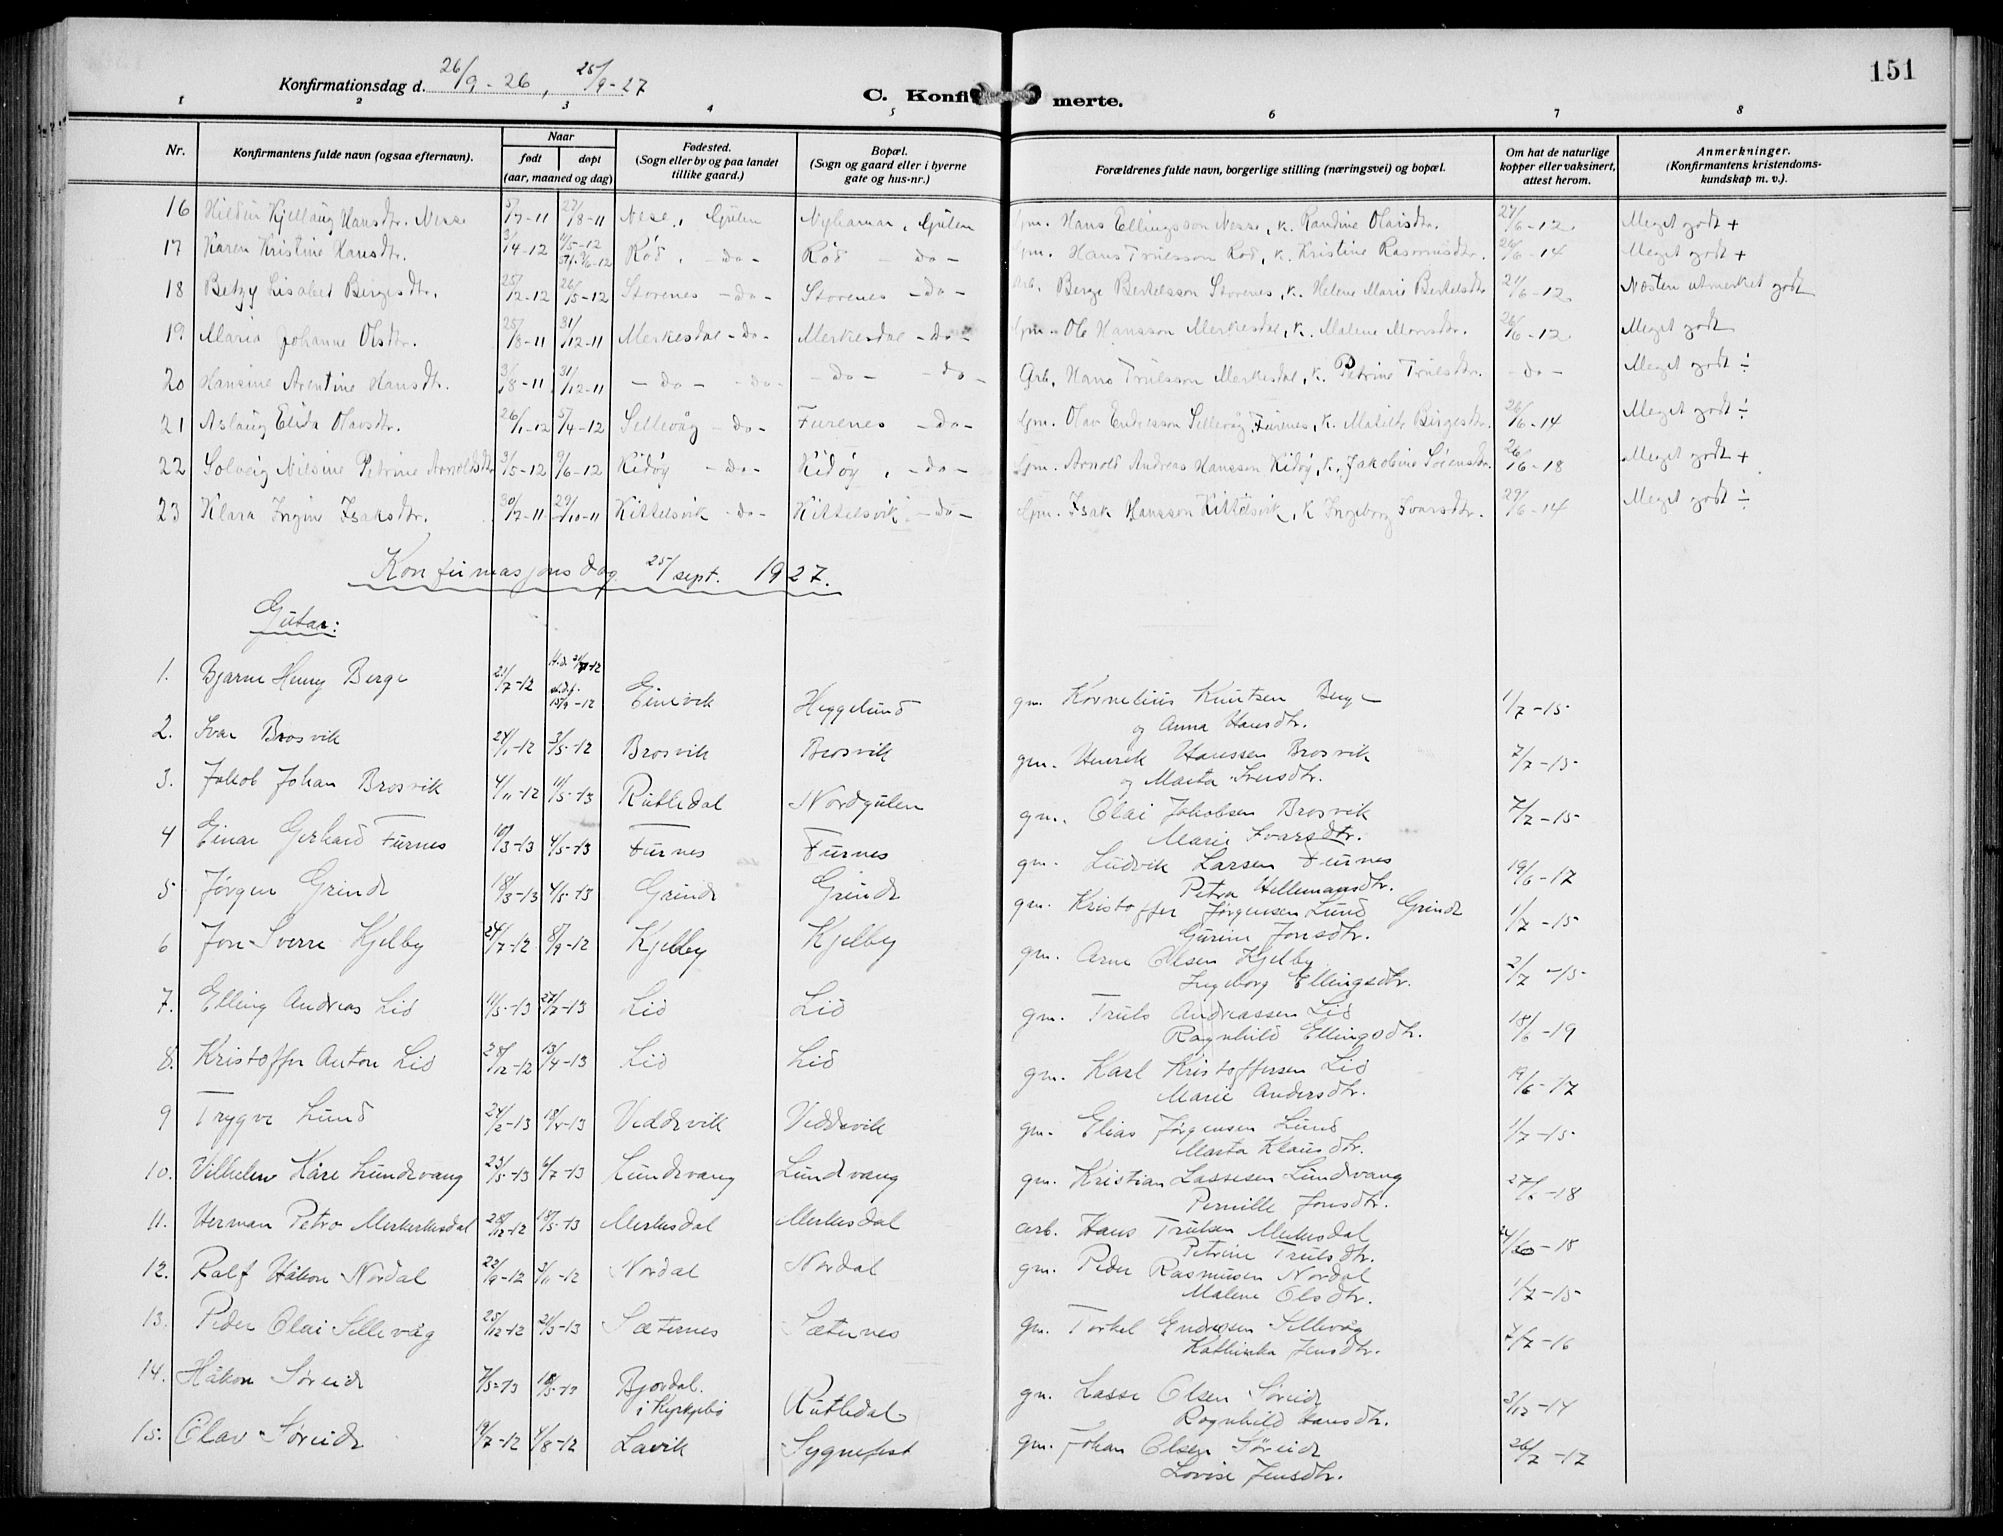 151
Konfirmationsdag d. 26/9-26, 25/9-27
C. Konfirmerte.
1 2 3 4 5 6 7 8
Nr.
Konfirmantens fulde navn (ogsaa efternavn).
Naar
født døpt
(aar, maaned og dag)
Fødested.
(Sogn eller by og paa landet
tillike gaard.)
Bopæl.
(Sogn og gaard eller i byerne
gate og hus-nr.)
Forældrenes fulde navn, borgerlige stilling (næringsvei) og bopæl.
Om hat de naturlige
kopper eller vaksinert,
attest herom.
Anmerkninger.
(Konfirmantens kristendoms-
kundskap m. v.).
16 Hildur Kjellaug Hansdtr. Nesse 5/7-11 27/8-11 Nese, Gulen Nyhamar, Gulen gm. Hans Ellingsson Nesse, k. Randine Olaisdtr. 27/6-12 Meget godt +
17 Karen Kristine Hansdtr. Röd, -do- Röd -do- gm. Hans Trulsson Röd, k. Kristine Rasmusdtr. 26/6-14 Meget godt +
18 Betzy Lisabet Bergesdtr. 25/2-12 26/5-12 Storenes -do- Storenes -do- Arb. Berge Bertelsson Storenes, k. Helene Marie Bertelsdtr 21/6-12 Næsten utmerket godt
19 Maria Johanne Olsdtr. 25/8-11 31/12-11 Merkesdal -do- Merkesdal -do- gm. Ole Hansson Merkesdal, k. Malene Monsdtr. 26/6-12 Meget godt
20 Hansine Arentine Hansdtr. 31/12-11 -do- -do- -do- -do- Arb. Hans Trulsson Merkesdal, k. Petrine Trulsdtr. -do- Meget godt ÷
21 Aslaug Elida Olavsdtr. 26/1-12 5/4-12 Sellevåg -do- Furenes -do- gm. Olav Endresson Sellevåg, Furenes, k. Matilde Birgesdtr. 26/6-14 Meget godt ÷
22 Solveig Nilsine Petrine Arnoldsdtr 3/5-12 9/6-12 Kidöy -do- Kidöy, -do- gm. Arnold Andreas Hansson Kidöy, k. Jakobine Sörensdtr. 26/6-18 Meget godt +
23 Klara Ingine Isaksdtr. 30/7-11 29/10-11 Kittelsvik -do- Kittelsvik -do- gm. Isak Hansson Kittelsvik, k Ingeborg Ivarsdtr. 29/6-14 Meget godt ÷
Konfirmasjonsdag 25/sept. 1927.
Gutar:
1. Bjarne Henry Berge 21/7-12 15/9-12 Einevik Heggelund gm. Kornelius Knutsen Berge 1/7-15
og Anna Hansdtr.
2. Ivar Brosvik 24/1-12 3/5-12 Brosvik Brosvik gm. Henrik Hanssen Brosvik 7/7-15
og Marta Iversdtr.
3. Jakob Johan Brosvik 4/11-12 11/5-13 Rutledal Nordgulen gm. Olai Jakobsen Brosvik 7/7-15
Marie Ivarsdtr.
4 Einar Gerhard Furnes 10/3-13 4/5-13 Furnes Furnes gm. Ludvik Larsen Furnes 19/6-17
Petra Hellemansdtr.
5 Jørgen Grinde 18/3-13 4/5-13 Grinde Grinde gm. Kristoffer Jørgensen Lund Grinde 1/7-15
Gurine Jonsdtr.
6 Jon Sverre Kjelby 24/7-12 8/9-12 Kjelby Kjelby gm. Arne Olsen Kjelby 2/7-15
Ingeborg Ellingsdtr.
7. Elling Andreas Lid 11/5-13 27/7-13 Lid Lid gm. Truls Andreassen Lid 18/6-19
Ragnhild Ellingsdtr.
8. Kristoffer Anton Lid 28/12-12 13/4-13 Lid Lid gm. Karl Kristoffersen Lid 19/6-17
Marie Andersdtr.
9 Trygve Lund 24/2-13 Veddevik Veddevik gm. Elias Jørgensen Lund 1/7-15
Marta Klausdtr.
10. Vilhelm Kåre Lundevang 23/5-13 6/7-13 Lundevang Lundevang gm. Kristian Lassesen Lundevang 27/6-18
Pernille Jonsdtr.
11. Herman Petro Merkerkesdal 28/12-12 18/5-13 Merkesdal Merkesdal arb. Hans Trulsen Merkesdal
Petrine Trulsdtr.
12. Ralf Håkon Nordal 22/9-12 3/11-12 Nordal Nordal gm. Peder Rasmusen Nordal 1/7-15
Malene Olsdtr.
13. Peder Olai Sellevåg 25/12-12 Sæternes Sæternes gm. Torkel Endresen Sellevåg 7/7-16
Kathinka Jensdtr.
14. Håkon Søreide 7/5-13 Bjordal. Rutledal gm. Lasse Olsen Søreide 3/12-14
i Kyrkjebø Ragnhild Hansdtr.
15. Olav Søreide 19/7-12 4/8-12 Lavik Sygnefest gm. Johan Olsen Søreide 26/7-17
Lovise Jensdtr.